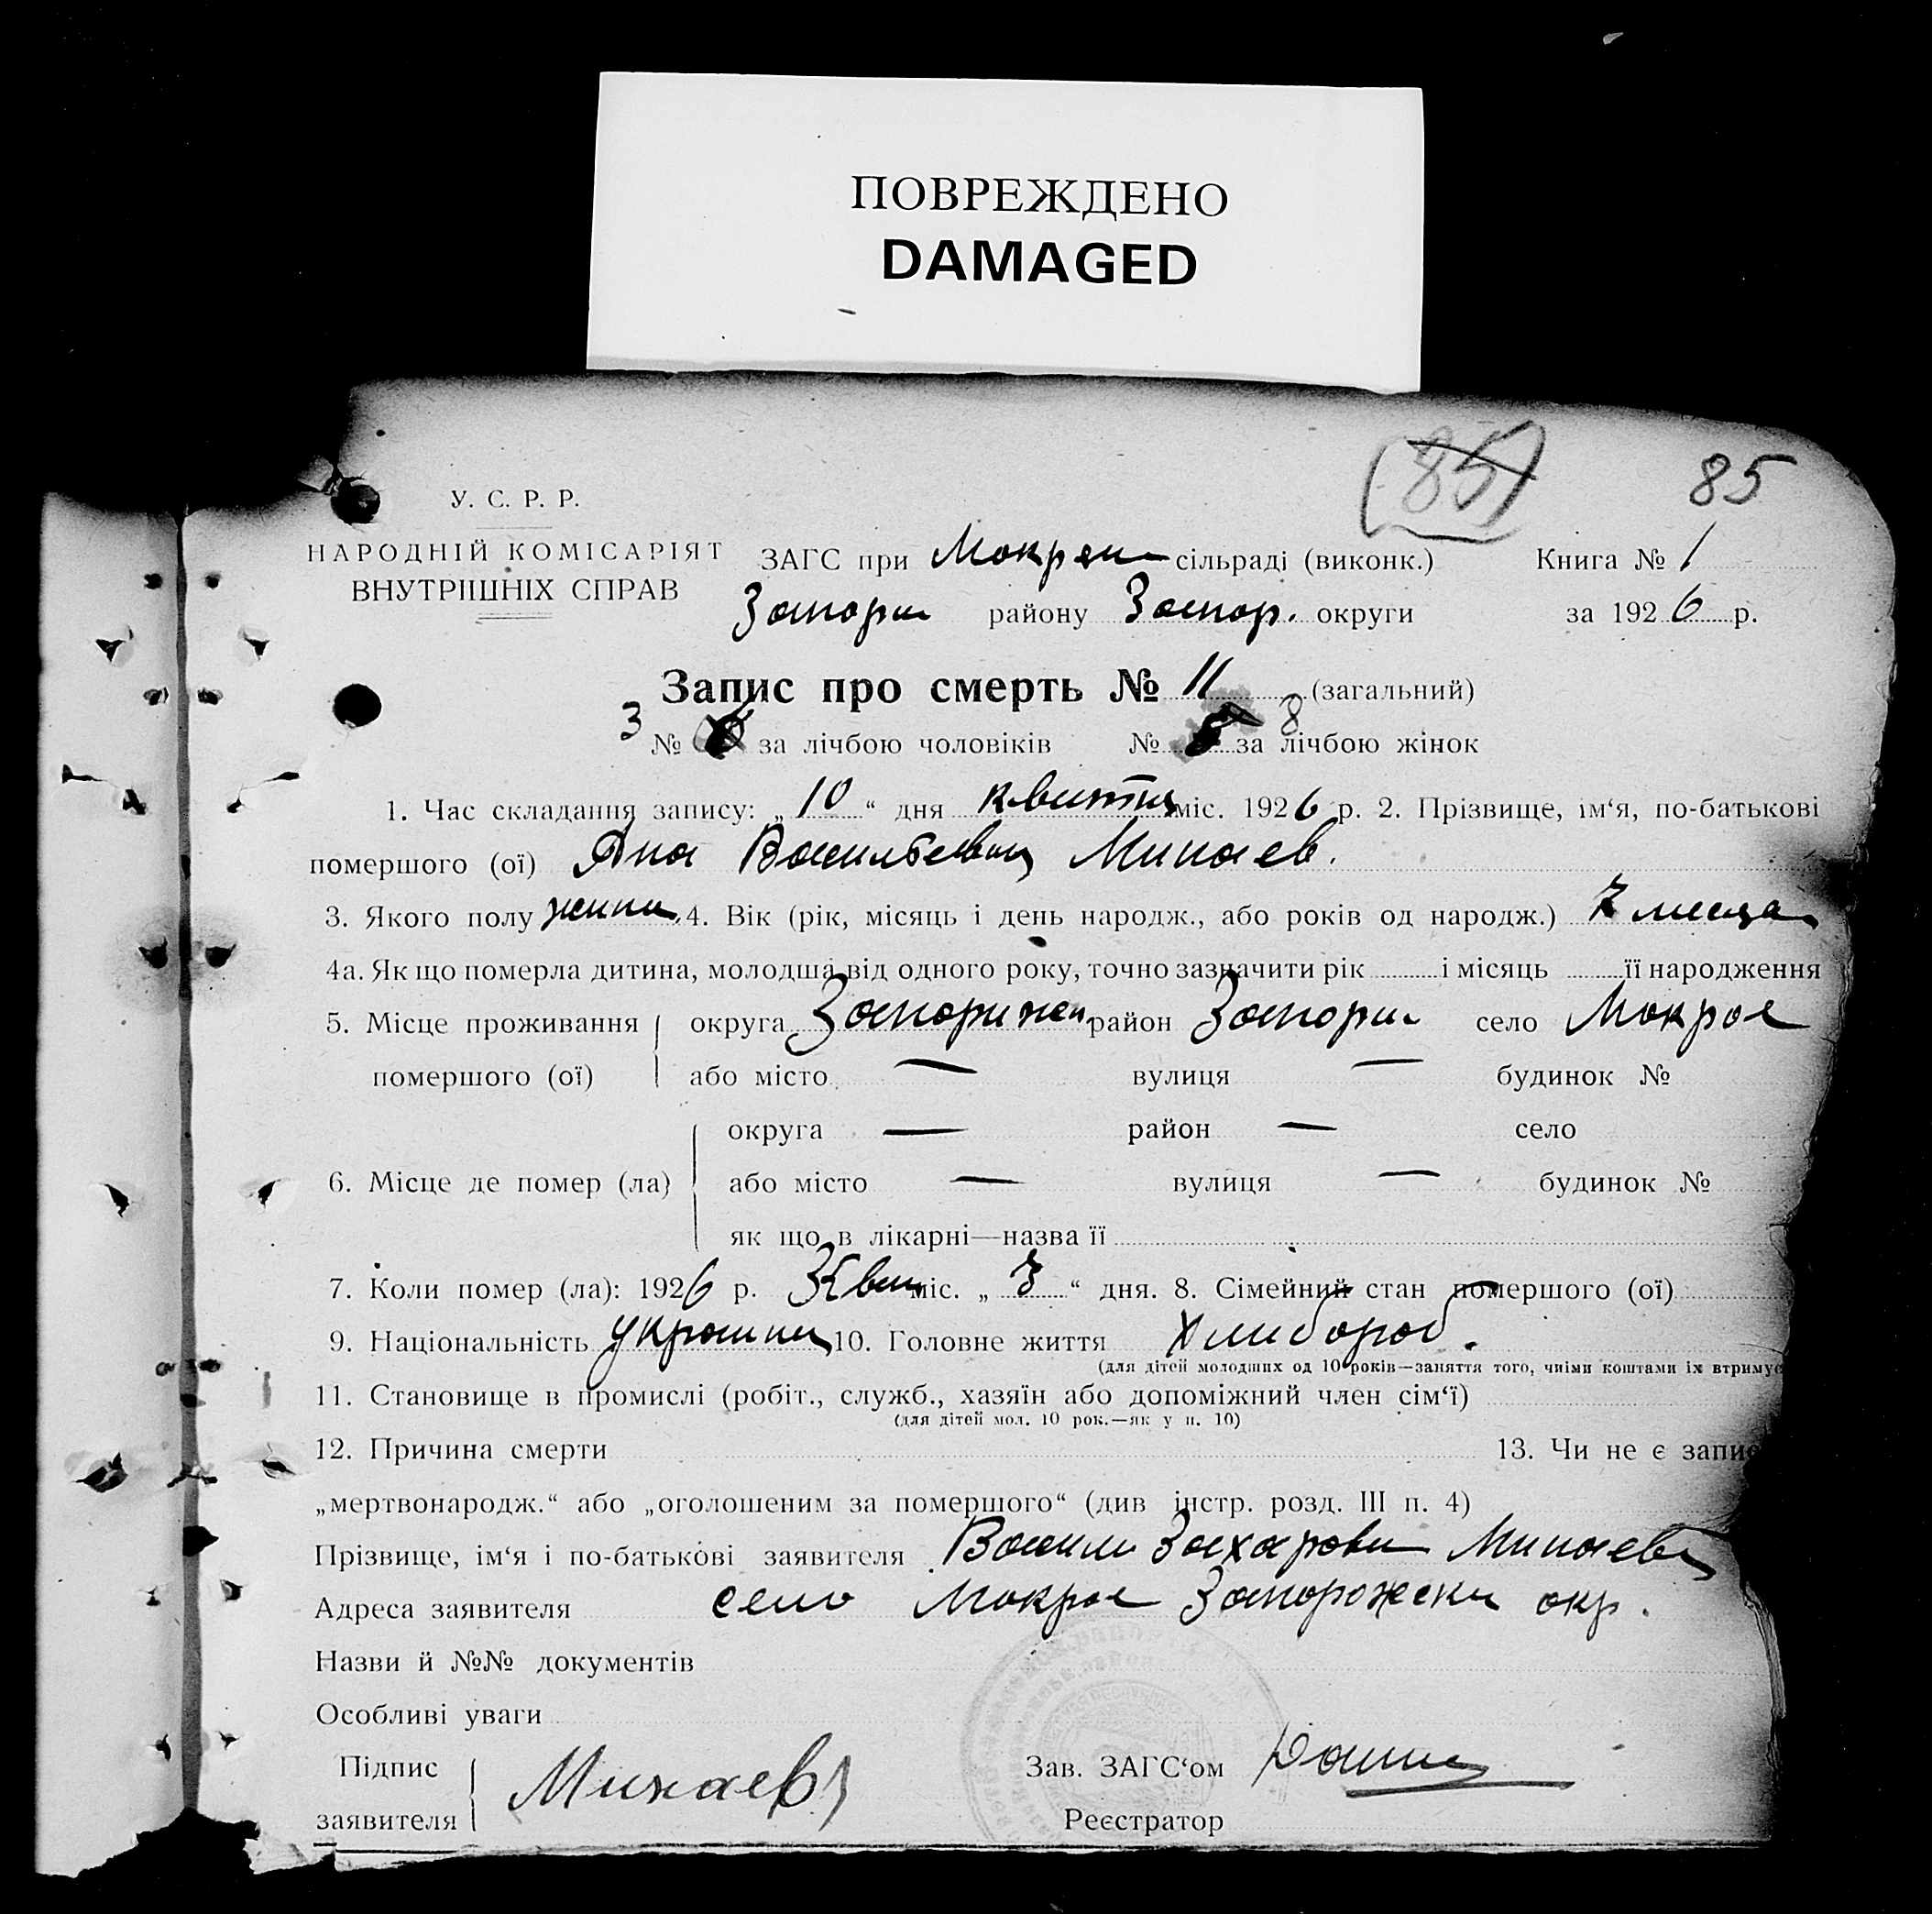 ПОВРЕЖДЕНО
DAMAGED
(85)
85
У. С. Р. Р.
НАРОДНІЙ КОМІСАРІЯТ
ВНУТРІШНІХ СПРАВ
ЗАГС при Мокрян сільраді (виконк.) Книга № 1
Запори району Запор. округи за 1926 р.
Запис про смерть № 11 (загальний)
3 № за лічбою чоловіків № за лічбою жінок 8
1. Час складання запису: „10“ дня квитня міс. 1926 р. 2. Прізвище, ім‘я, по-батькові
помершого (ої) Ана Васильевна Минаев.
3. Якого полу жини. 4. Вік (рік, місяць і день народж., або років од народж.) 7 месяца
4а. Як що померла дитина, молодша від одного року, точно зазначити рік і місяць її народження
5. Місце проживання округа Запорижск район Запори село Мокрое
помершого (ої) або місто — вулиця — будинок №
округа — район — село
6. Місце де помер (ла) або місто — вулиця — будинок №
як що в лікарні—назва її
7. Коли помер (ла): 1926 р. Квит міс. „3“ дня. 8. Сімейний стан помершого (ої)
9. Національність украини 10. Головне життя хлибороб.
(для дітей молодших од 10 років—заняття того, чиїми коштами їх втримує
11. Становище в промислі (робіт., служб., хазяїн або допоміжний член сім‘ї)
(для дітей мол. 10 рок.—як у п. 10)
12. Причина смерти 13. Чи не є запис
„мертвонародж.“ або „оголошеним за помершого“ (див інстр. розд. III п. 4)
Прізвище, ім‘я і по-батькові заявителя Васили Захарови Минаев
Адреса заявителя село Мокрое Запорожски окр.
Назви й №№ документів
Особливі уваги
Підпис
заявителя Минаев
Зав. ЗАГС‘ом
Реєстратор